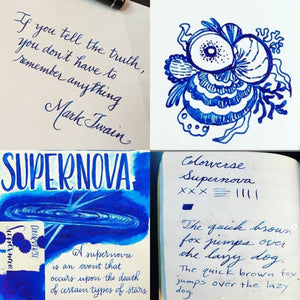 If you tell the truth,
you don't have to
remember anything
Mark Twain
SUPERNOVA
Colorverse
Supernova
A supernova
is an event that
occurs upon the death
of certain types of stars.
Colorverse
Supernova
x x x
The quick brown
fox jumps over
the lazy dog.
The quick brown fox
jumps over the lazy
dog.